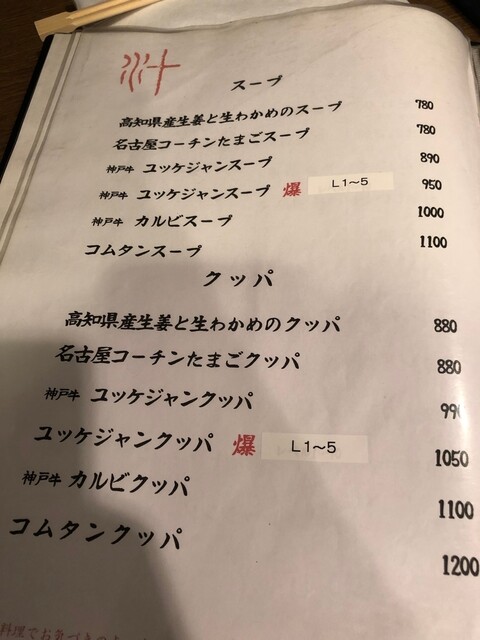 汁
スープ
高知県産生姜と生わかめのスープ 780
名古屋コーチンたまごスープ 780
神戸牛 ユッケジャンスープ 890
神戸牛 ユッケジャンスープ 爆 L1~5 950
神戸牛 カルビスープ 1000
コムタンスープ 1100
クッパ
高知県産生姜と生わかめのクッパ 880
名古屋コーチンたまごクッパ 880
神戸牛 ユッケジャンクッパ 990
ユッケジャンクッパ 爆 L1~5 1050
神戸牛 カルビクッパ 1100
コムタンクッパ 1200
料理でお気づきの